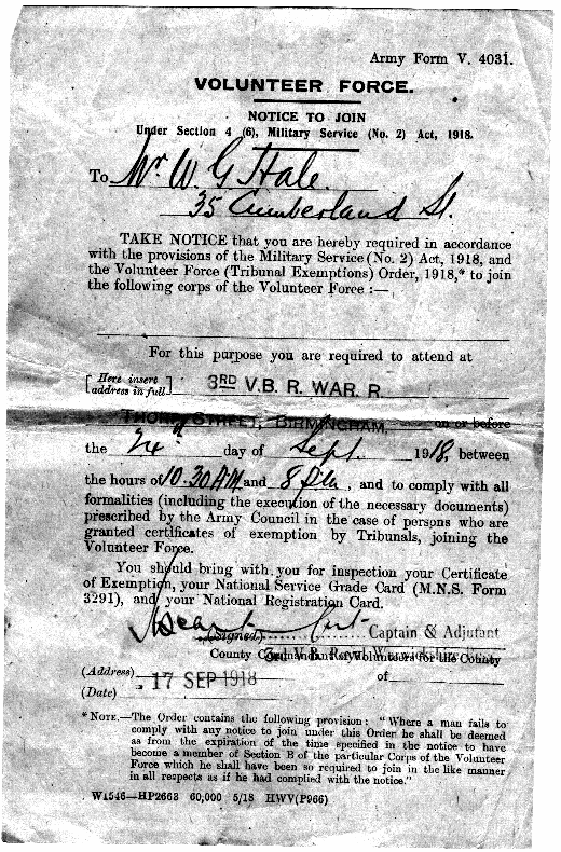 Army Form V. 4031.
VOLUNTEER FORCE.
NOTICE TO JOIN
Under Section 4 (6), Military Service (No. 2) Act, 1918.
To Mr. W. G. Hale.
35 Cumberland St.
TAKE NOTICE that you are hereby required in accordance
with the provisions of the Military Service (No. 2) Act, 1918, and
the Volunteer Force (Tribunal Exemptions) Order, 1918,* to join
the following corps of the Volunteer Force :—
For this purpose you are required to attend at
[Here insert address in full] 3RD V.B. R. WAR. R.
THORP STREET, BIRMINGHAM, on or before
the day of Sept. 1918, between
the hours of 10.30 AM and 8 P.M., and to comply with all
formalities (including the execution of the necessary documents)
prescribed by the Army Council in the case of persons who are
granted certificates of exemption by Tribunals, joining the
Volunteer Force.
You should bring with you for inspection your Certificate
of Exemption, your National Service Grade Card (M.N.S. Form
3291), and your National Registration Card.
(Signed) Capt Captain & Adjutant
County Commandant of Volunteers for the County
(Address) of
(Date) 17 SEP 1918
* NOTE.—The Order contains the following provision : "Where a man fails to
comply with any notice to join under this Order he shall be deemed
as from the expiration of the time specified in the notice to have
become a member of Section B of the particular Corps of the Volunteer
Force which he shall have been so required to join in the like manner
in all respects as if he had complied with the notice."
W1546—HP2663 60,000 5/18 HWV(P966)